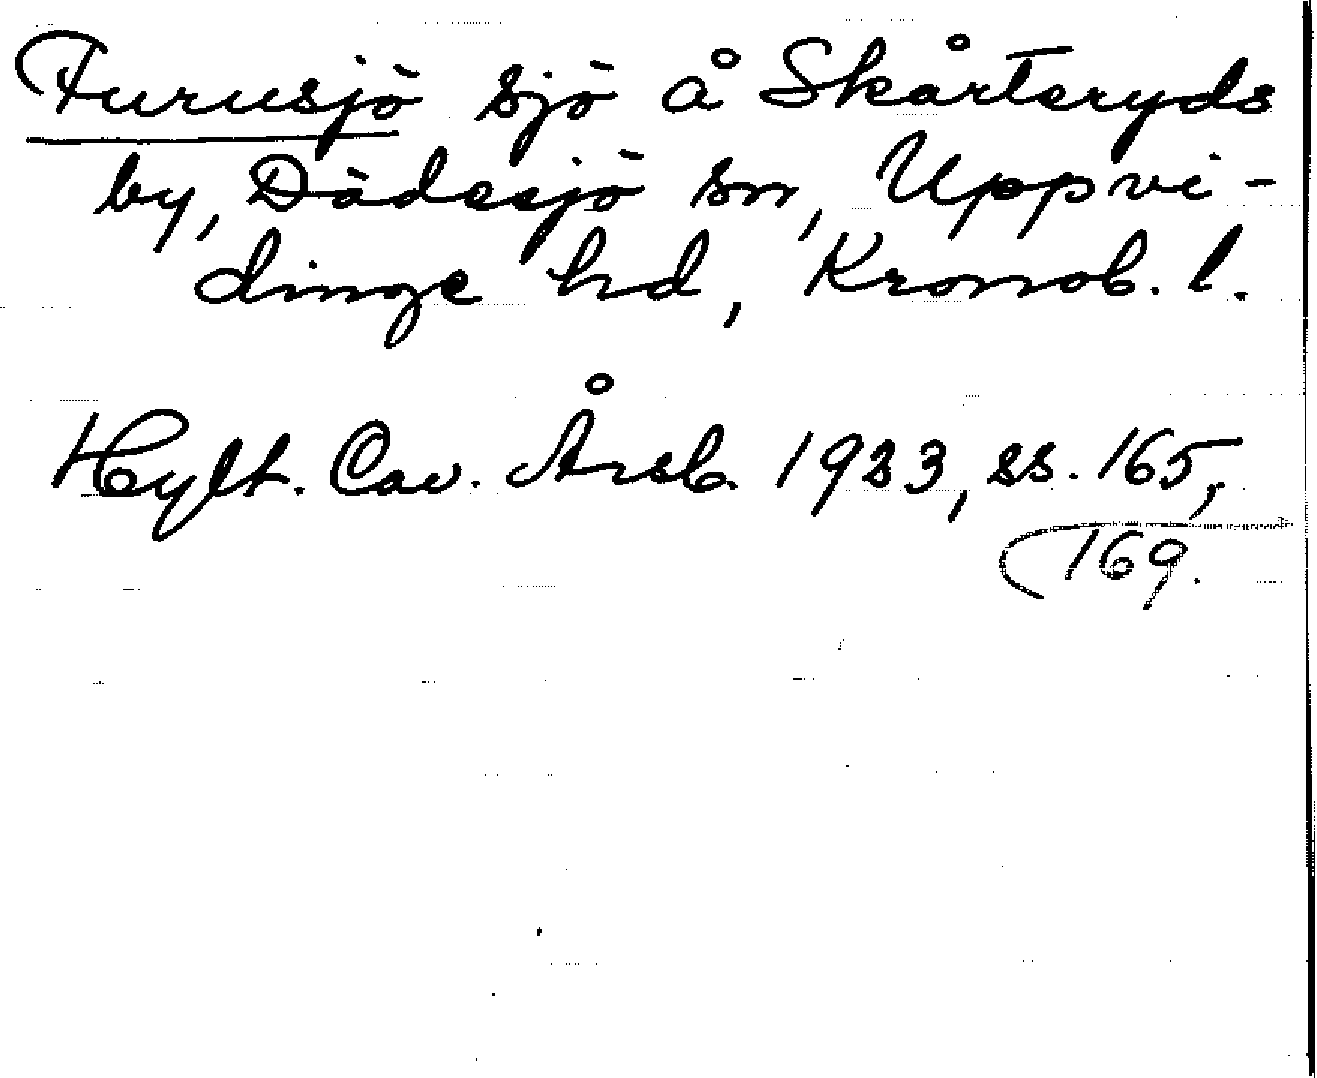 Furusjö sjö å Skårteryds
by, Dädesjö sn, Uppvi-
dinge hd, Kronob. l.
Hylt. Cav. Årsb. 1933, ss. 165,
169.